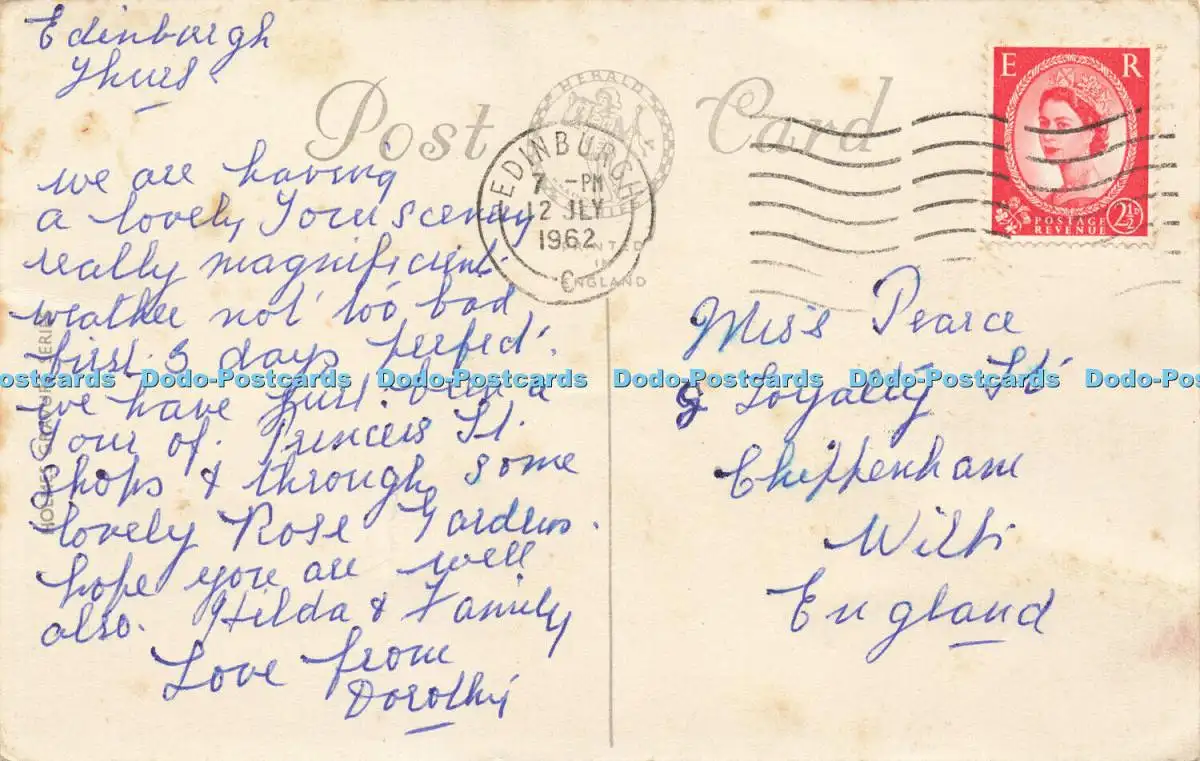 Edinburgh
Thurs.
Post Card
HERALD
PRINTED
IN
ENGLAND
EDINBURGH
7 - PM
12 JLY
1962
C
E R
POSTAGE
REVENUE
2½D
we are having
a lovely Tour Scenery
really magnificent
weather not too bad
first 3 days perfect.
we have just been a
Tour of Princess St.
shops & through some
lovely Rose Gardens.
hope you are well
also. Hilda & Family
Love from
Dorothy
Miss Pearce
Loyalty St
Chippenham
Wilts
England
HOLMES GRAVURE SERIES
Dodo-Postcards Dodo-Postcards Dodo-Postcards Dodo-Postcards Dodo-Postcards